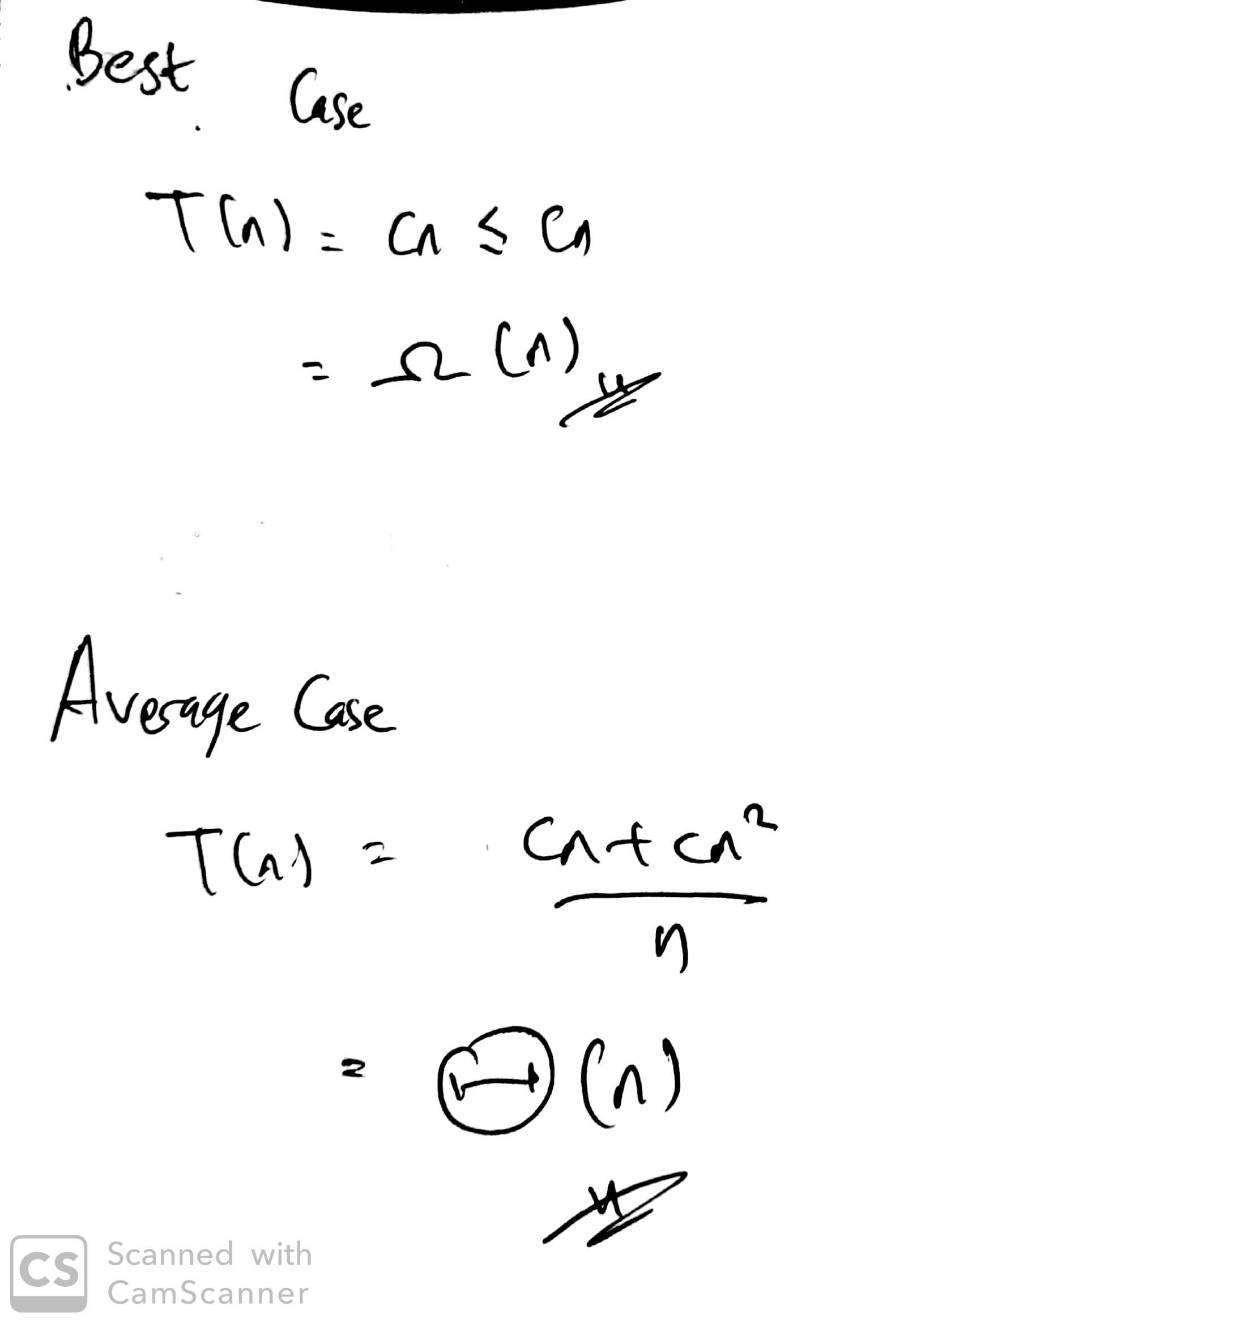 Best Case
T(n) = cn ≤ cn
= Ω (n)
Average Case
T(n) = cn + cn²
n
= Θ (n)
CS Scanned with
CamScanner